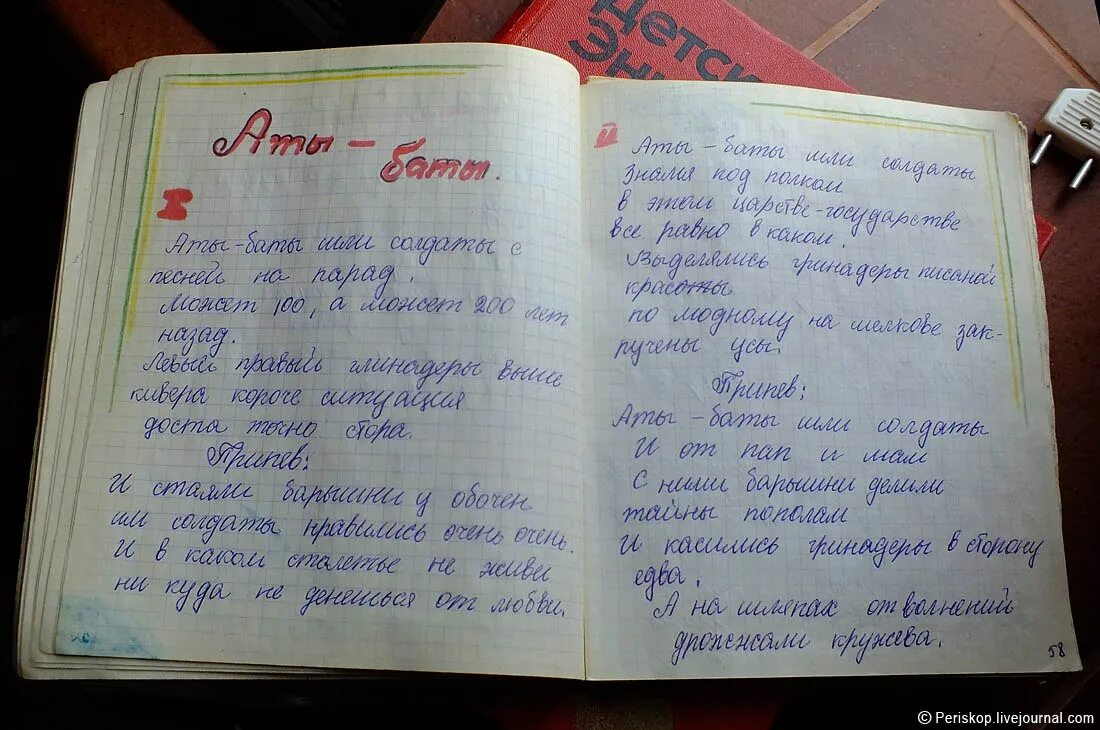 Детск
Эн
Аты –
баты.
I
Аты-баты шли солдаты с
песней на парад.
Может 100, а может 200 лет
назад.
Левый правый глинадеры выши
кивера короче ситуация
доста точно стора.
Припев:
И стаяли барышни у обочен
им солдаты нравились очень очень.
И в каком столетье не живи
ни куда не денешься от любви.
II
Аты – баты шли солдаты
Знамя под полком
в этом царстве-государстве
все равно в каком.
Выделялись гринадеры писаной
красоты
по модному на шелкове зак-
ручены усы.
Припев:
Аты – баты шли солдаты
И от пап и мам
С ними барышни делили
тайны пополам
И касились гринадеры в сторону
едва.
А на шляпах от волнений
дрожжали кружева.
58
© Periskop.livejournal.com